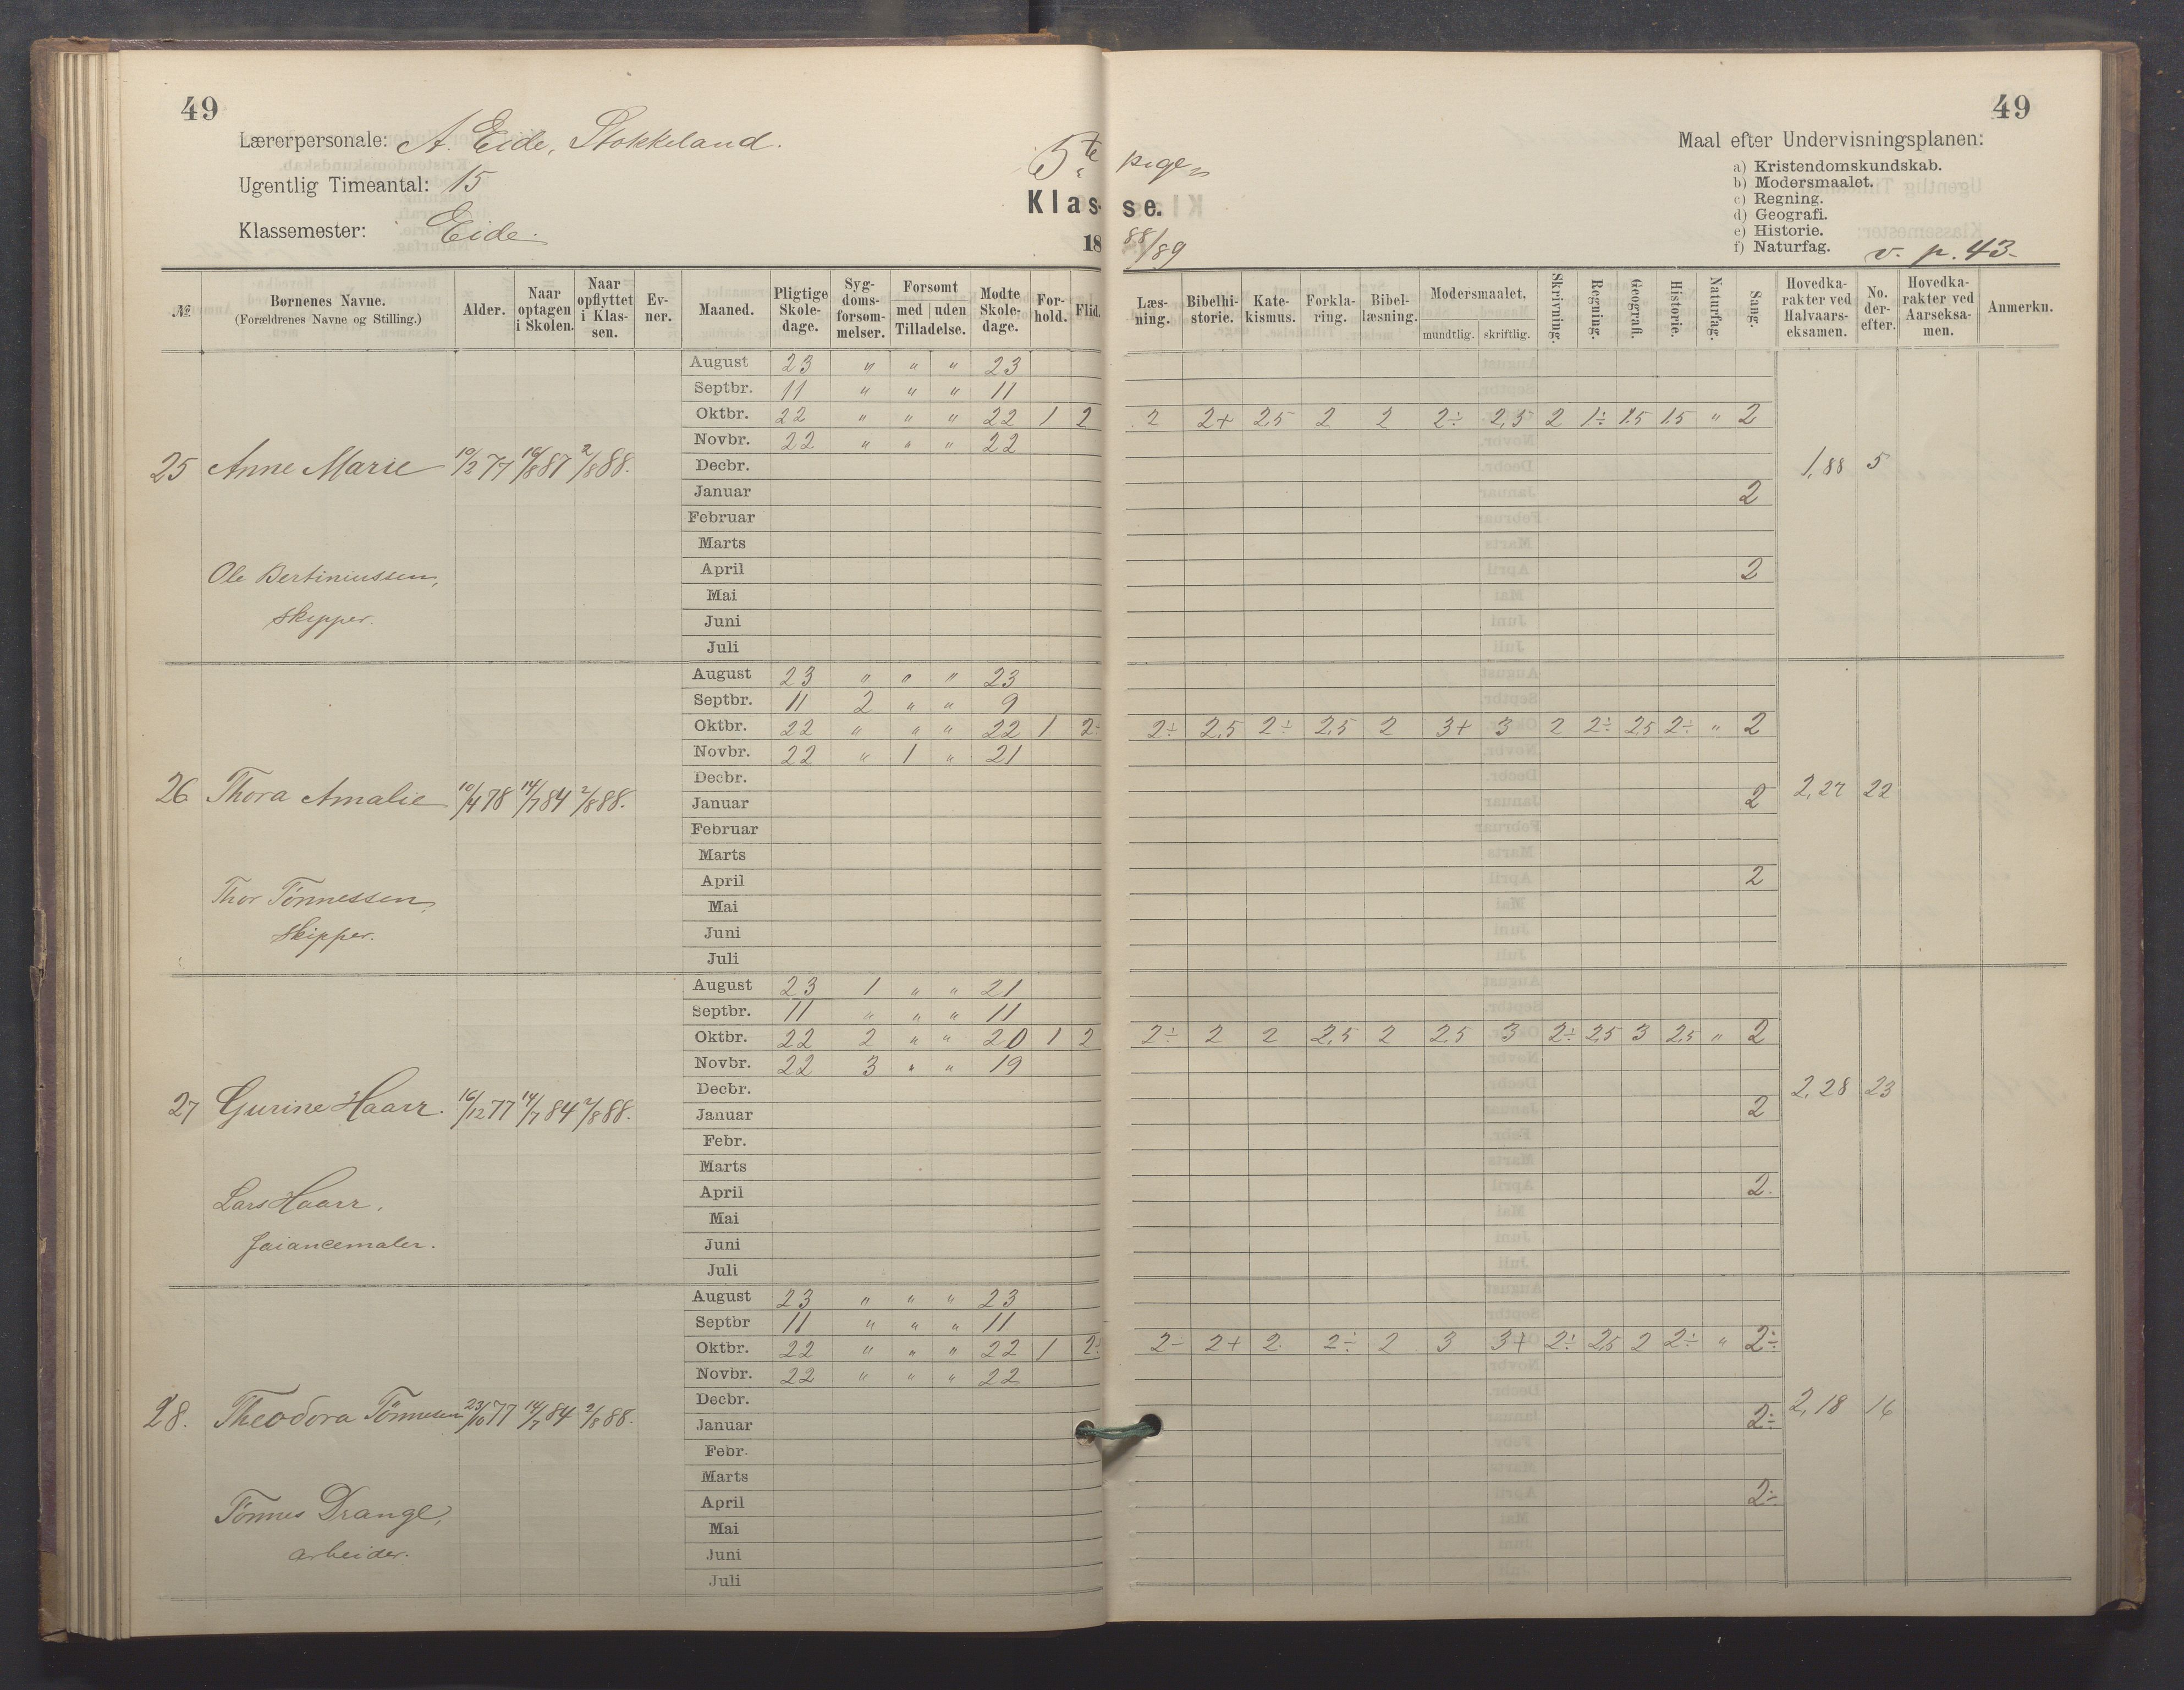 49
Lærerpersonale: A. Eide, Stokkeland.
Ugentlig Timeantal: 15
Klassemester: Eide.
5te pige
Klas- se.
18 88/89
49
Maal efter Undervisningsplanen:
a) Kristendomskundskab.
b) Modersmaalet.
c) Regning.
d) Geografi.
e) Historie.
f) Naturfag. v. p. 43.
№ Børnenes Navne. (Forældrenes Navne og Stilling.) Alder. Naar optagen i Skolen. Naar opflyttet i Klassen. Evner. Maaned. Pligtige Skoledage. Sygdomsforsømmelser. Forsømt med uden Tilladelse. Mødte Skoledage. Forhold. Flid. Læsning. Bibelhistorie. Katekismus. Forklaring. Bibellæsning. Modersmaalet, mundtlig. skriftlig. Skrivning. Regning. Geografi. Historie. Naturfag. Sang. Hovedkarakter ved Halvaarseksamen. No. derefter. Hovedkarakter ved Aarseksamen. Anmerkn.
August 23 " " " 23
Septbr. 11 " " " 11
Oktbr. 22 " " " 22 1 2 2 2+ 2,5 2 2 2÷ 2,5 2 1÷ 1,5 1,5 " 2
Novbr. 22 " " " 22
25 Anne Marie 10/2 77 16/8 87 2/8 88. Decbr. 1,88 5
Januar 2
Februar
Marts
Ole Bertiniussen, April 2
Mai
skipper. Juni
Juli
August 23 " " " 23
Septbr. 11 2 " " 9
Oktbr. 22 " " " 22 1 2÷ 2÷ 2,5 2÷ 2,5 2 3+ 3 2 2÷ 2,5 2÷ " 2
Novbr. 22 " 1 " 21
Decbr.
26 Thora Amalie 10/4 78 14/7 84 2/8 88. Januar 2 2,27 22
Februar
Marts
April 2
Thor Tönnessen, Mai
skipper. Juni
Juli
August 23 1 " " 21
Septbr. 11 " " " 11
Oktbr. 22 2 " " 20 1 2 2÷ 2 2 2,5 2 2,5 3 2÷ 2,5 3 2,5 " 2
Novbr. 22 3 " " 19
Decbr. 2,28 23
27 Gurine Haarr. 16/12 77 14/7 84 2/8 88. Januar 2
Febr.
Marts
Lars Haarr, April 2.
Mai
faiancemaler. Juni
Juli
August 23 " " " 23
Septbr 11 " " " 11
Oktbr. 22 " " " 22 1 2÷ 2÷ 2+ 2. 2÷ 2 3 3+ 2÷ 2,5 2 2÷ " 2÷
Novbr. 22 " " " 22
Decbr.
28. Theodora Tönnesen 23/10 77 14/7 84 2/8 88. Januar 2÷ 2,18 16
Febr.
Marts
Tönnes Drange, April 2÷
Mai
arbeider. Juni
Juli